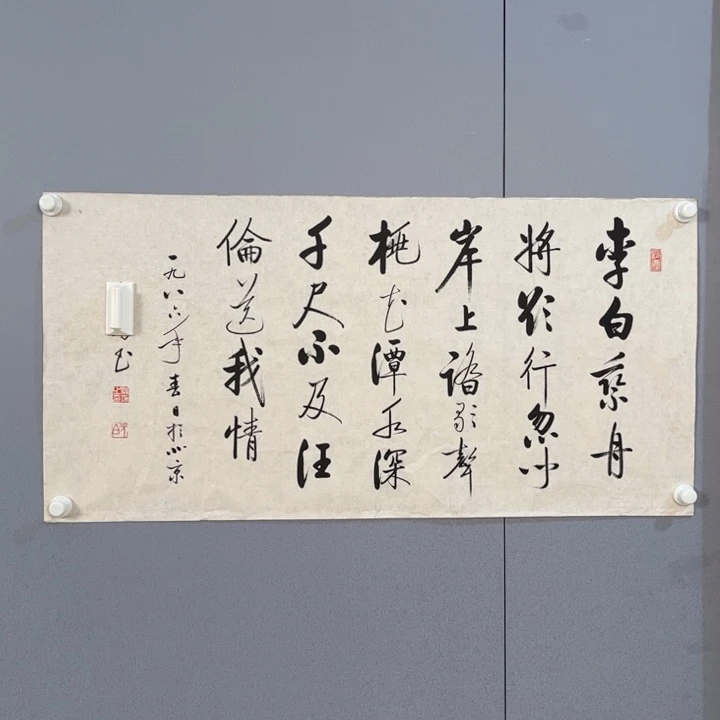 李白乘舟
將欲行忽聞
岸上踏歌聲
桃花潭水深
千尺不及汪
倫送我情
一九八六年春日於北京
书